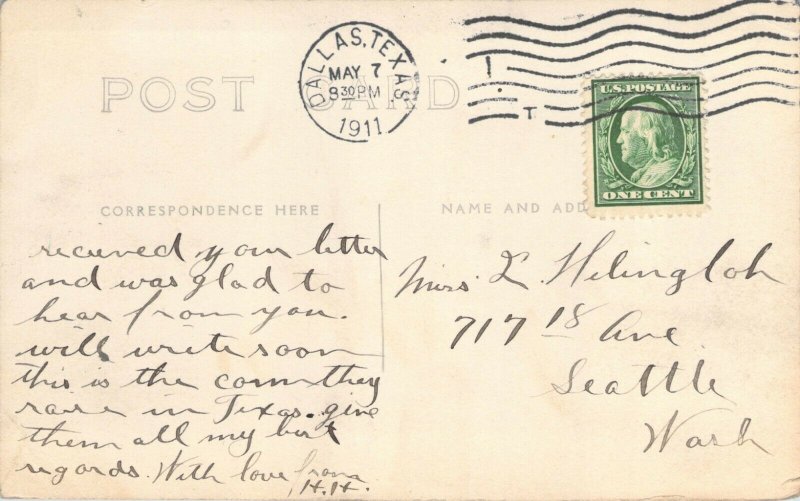 DALLAS, TEXAS
MAY 7
8 30 PM
1911
T
POST CARD
U.S. POSTAGE
ONE CENT
CORRESPONDENCE HERE
NAME AND ADD
recieved your letter
and was glad to
hear from you.
will write soon
this is the corn they
rase in Texas. give
them all my best
regards. With love from
H.H.
Miss L. Hilingloh
717 18 Ave
Seattle
Wash